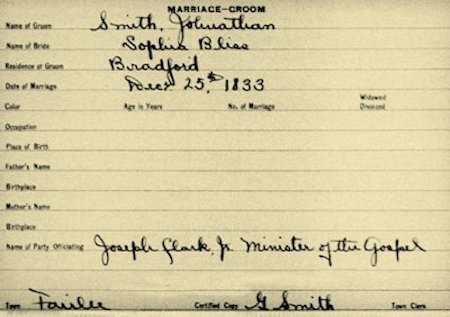 MARRIAGE-GROOM
Name of Groom Smith, Johnathan
Name of Bride Sophia Bliss
Residence of Groom Bradford
Date of Marriage Decr 25th, 1833
Color Age in Years No. of Marriage Widowed Divorced
Occupation
Place of Birth
Father's Name
Birthplace
Mother's Name
Birthplace
Name of Party Officiating Joseph Clark, Jr. Minister of the Gospel
Town Fairlee Certified Copy G Smith Town Clerk